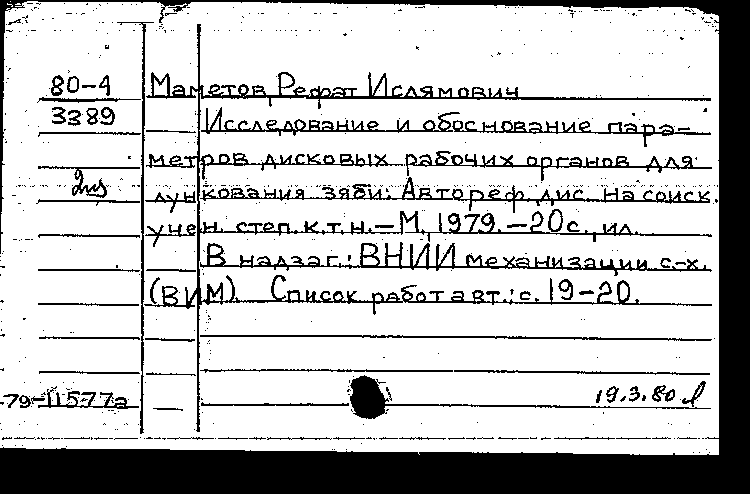 80-4 Маметов Рефат Ислямович
3389 Исследование и обоснование пара-
метров дисковых рабочих органов для
лункования зяби: Автореф. дис. на соиск.
учен. степ. к.т.н. – М., 1979. – 20 с., ил.
В надзаг.: ВНИИ механизации с.-х.
(ВИМ). Список работ авт.: с. 19-20.
79-11577а — 19.3.80